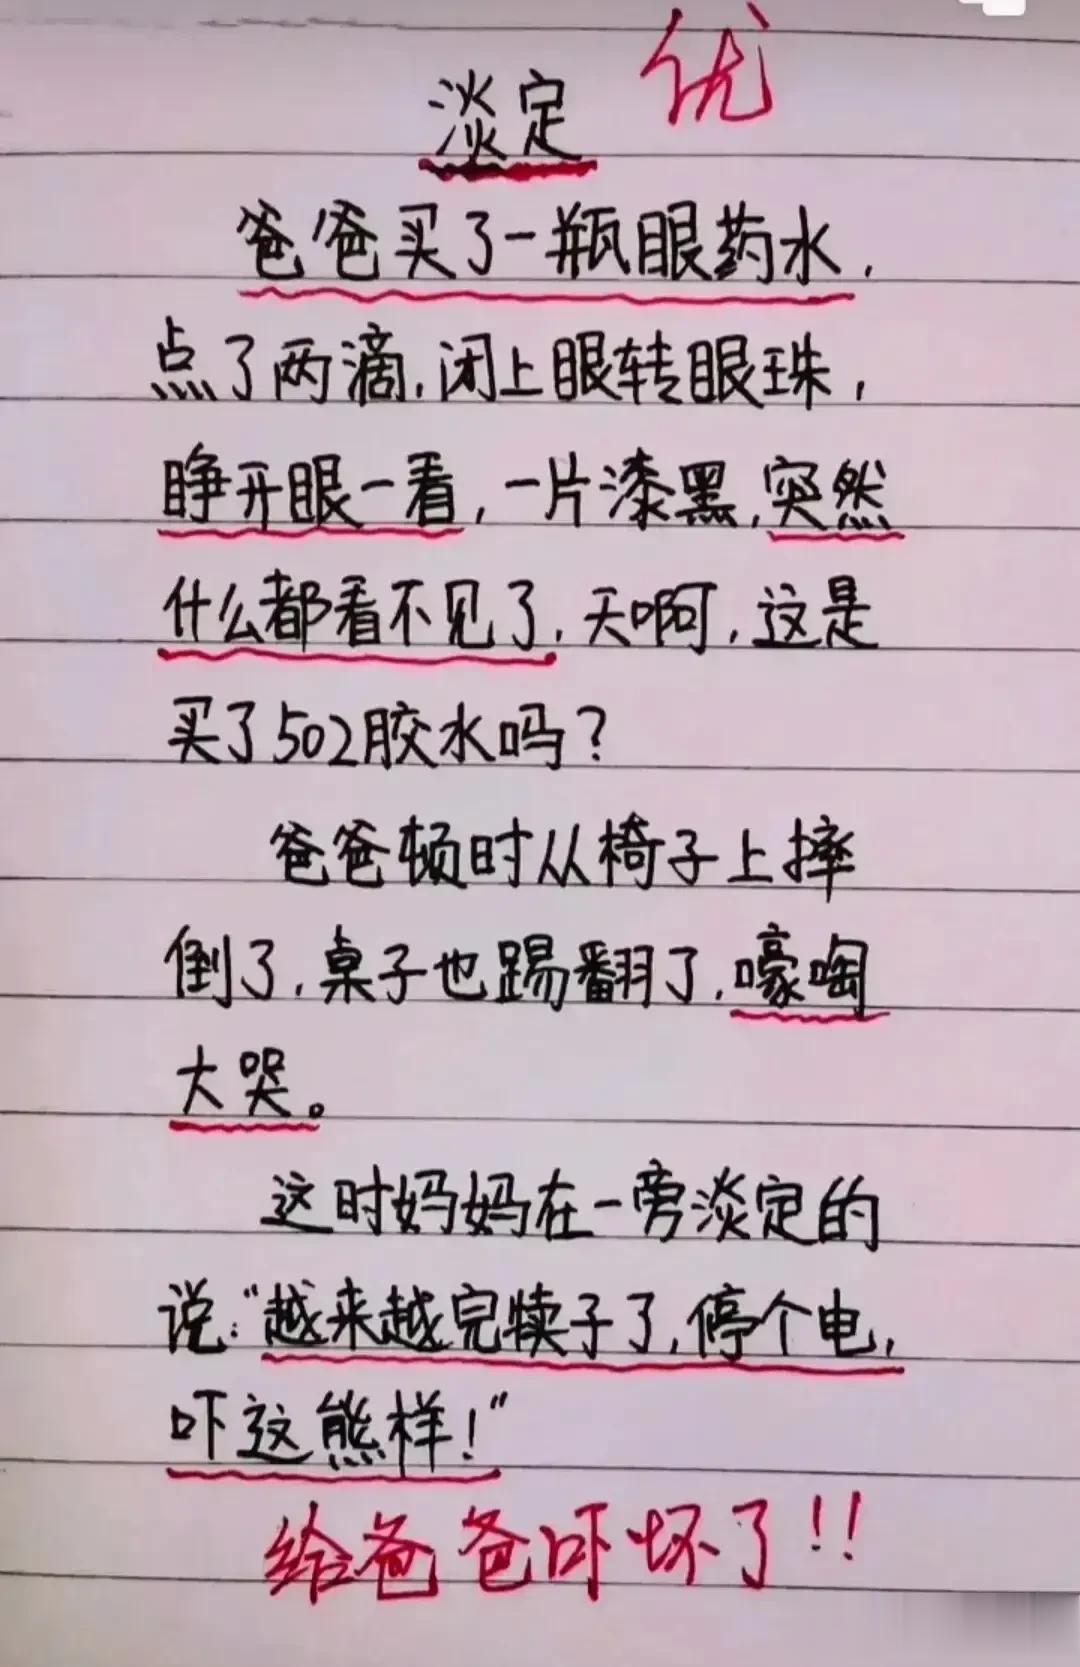 淡定 优
爸爸买了一瓶眼药水，
点了两滴，闭上眼转眼珠，
睁开眼一看，一片漆黑，突然
什么都看不见了，天啊，这是
买了502胶水吗？
爸爸顿时从椅子上摔
倒了，桌子也踢翻了，嚎啕
大哭。
这时妈妈在一旁淡定的
说：“越来越完犊子了，停个电，
吓这熊样！”
给爸爸吓坏了！！